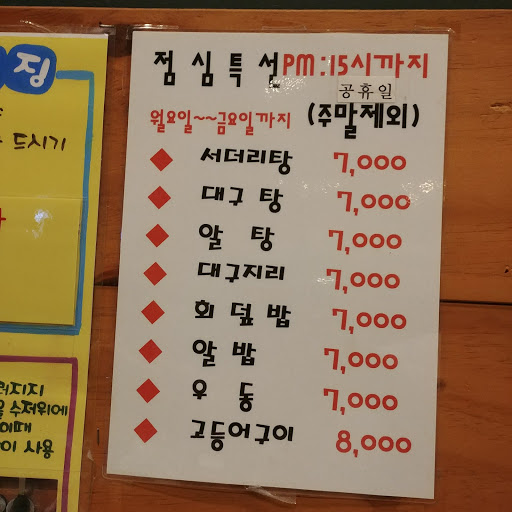 징
드시기
점심특선PM:15시까지
공휴일
월요일~~금요일까지 (주말제외)
◆ 서더리탕 7,000
◆ 대구탕 7,000
◆ 알탕 7,000
◆ 대구지리 7,000
◆ 회덮밥 7,000
◆ 알밥 7,000
◆ 우동 7,000
◆ 고등어구이 8,000
수저위에
이때
사용